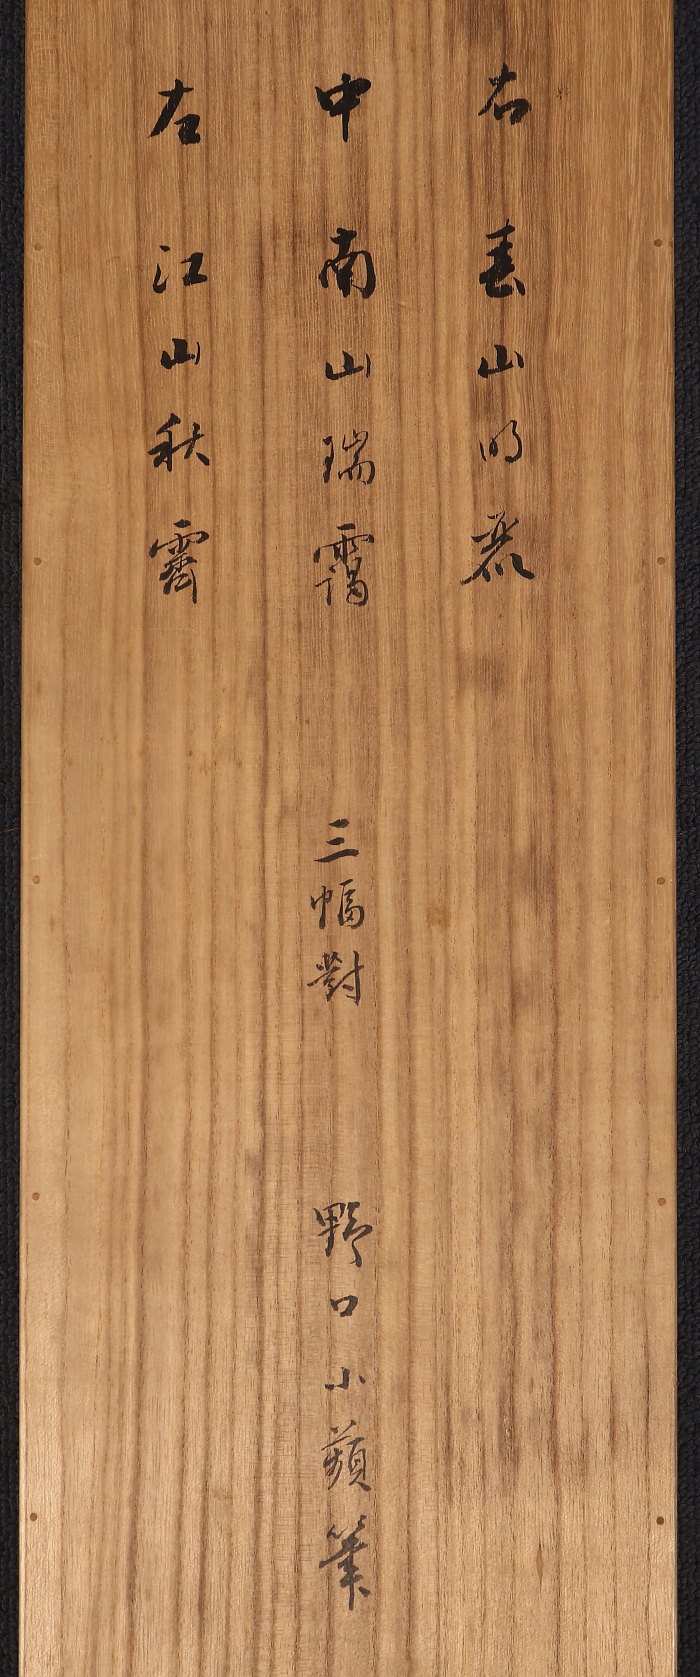 右 春山明麗
中 南山瑞靄 三幅對 野口小蘋筆
左 江山秋霽